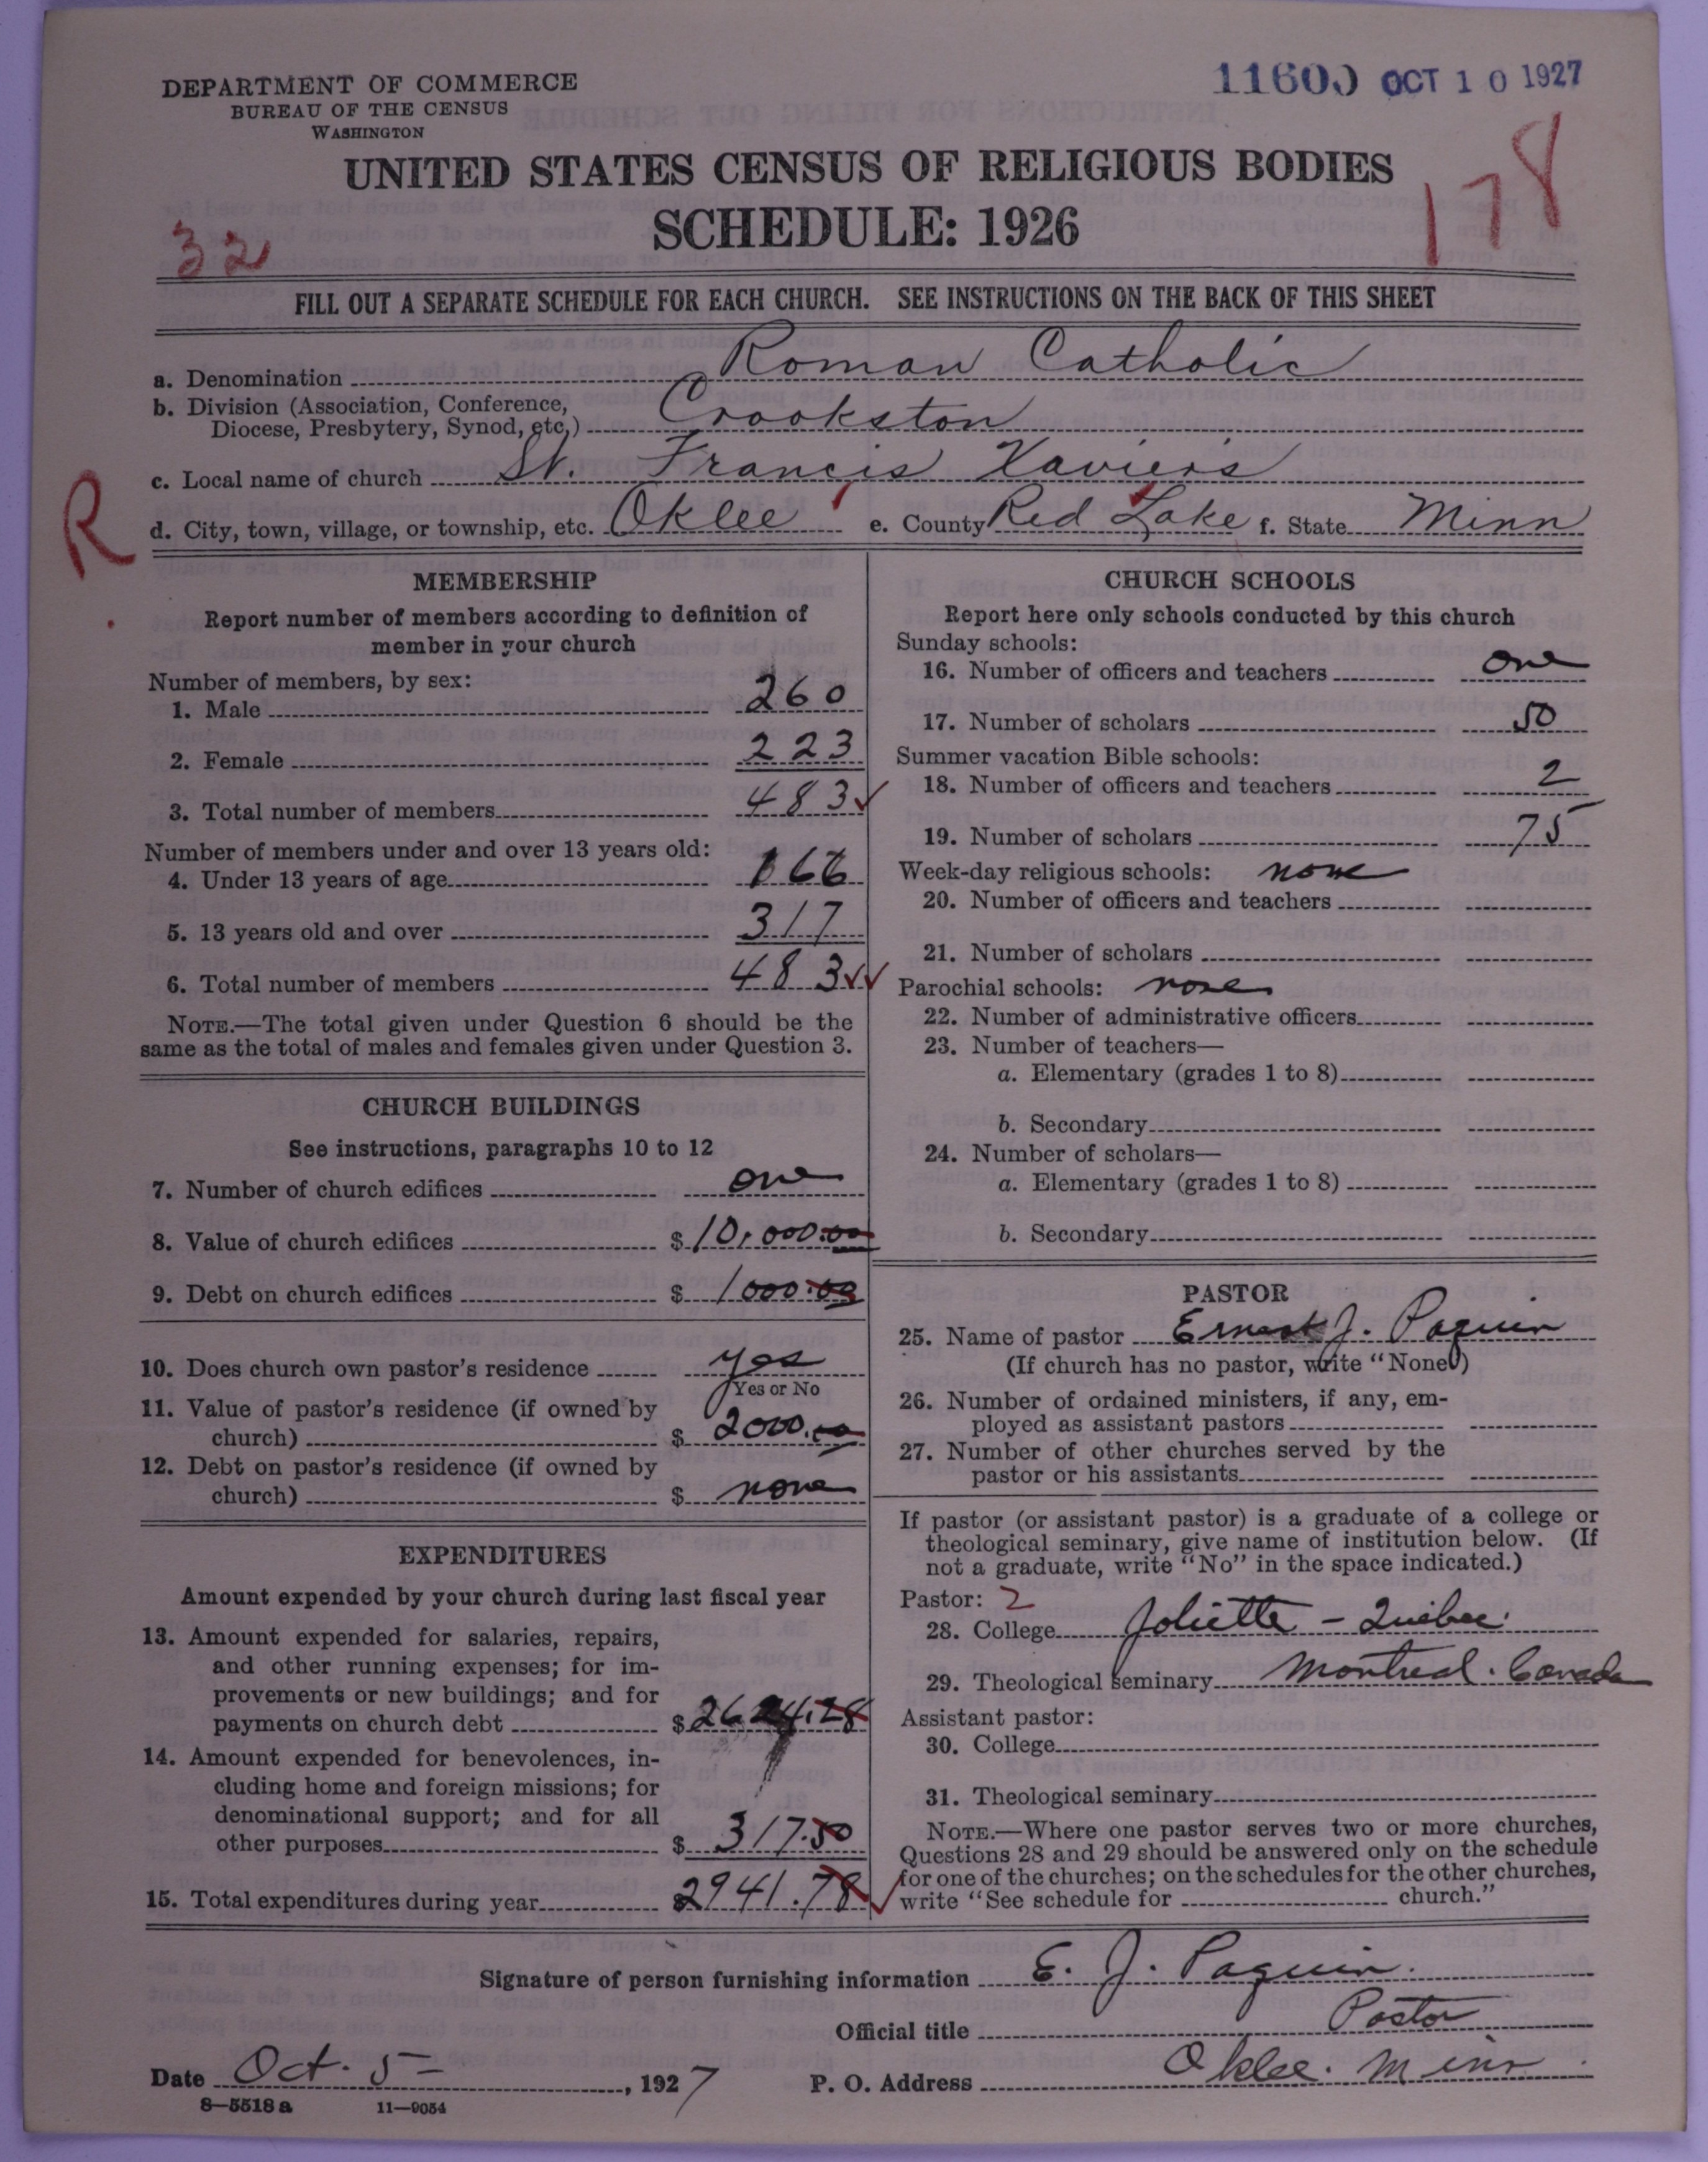 11600 OCT 10 1927
DEPARTMENT OF COMMERCE
BUREAU OF THE CENSUS
WASHINGTON
UNITED STATES CENSUS OF RELIGIOUS BODIES
SCHEDULE: 1926
32
178
FILL OUT A SEPARATE SCHEDULE FOR EACH CHURCH. SEE INSTRUCTIONS ON THE BACK OF THIS SHEET
a. Denomination Roman Catholic
b. Division (Association, Conference,
Diocese, Presbytery, Synod, etc.) Crookston
c. Local name of church St. Francis Xavier's
R
d. City, town, village, or township, etc. Oklee e. County Red Lake f. State Minn
MEMBERSHIP
Report number of members according to definition of
member in your church
Number of members, by sex:
1. Male 260
2. Female 223
3. Total number of members 483
Number of members under and over 13 years old:
4. Under 13 years of age 166
5. 13 years old and over 317
6. Total number of members 483
NOTE.—The total given under Question 6 should be the
same as the total of males and females given under Question 3.
CHURCH BUILDINGS
See instructions, paragraphs 10 to 12
7. Number of church edifices one
8. Value of church edifices $ 10,000.00
9. Debt on church edifices $ 1000.00
10. Does church own pastor's residence yes
Yes or No
11. Value of pastor's residence (if owned by
church) $ 2000.00
12. Debt on pastor's residence (if owned by
church) $ none
EXPENDITURES
Amount expended by your church during last fiscal year
13. Amount expended for salaries, repairs,
and other running expenses; for im-
provements or new buildings; and for
payments on church debt $ 2624.28
14. Amount expended for benevolences, in-
cluding home and foreign missions; for
denominational support; and for all
other purposes $ 317.50
15. Total expenditures during year 2941.78
CHURCH SCHOOLS
Report here only schools conducted by this church
Sunday schools:
16. Number of officers and teachers one
17. Number of scholars 50
Summer vacation Bible schools:
18. Number of officers and teachers 2
19. Number of scholars 75
Week-day religious schools: none
20. Number of officers and teachers
21. Number of scholars
Parochial schools: none
22. Number of administrative officers
23. Number of teachers—
a. Elementary (grades 1 to 8)
b. Secondary
24. Number of scholars—
a. Elementary (grades 1 to 8)
b. Secondary
PASTOR
25. Name of pastor Ernest J. Paquin
(If church has no pastor, write "None")
26. Number of ordained ministers, if any, em-
ployed as assistant pastors
27. Number of other churches served by the
pastor or his assistants
If pastor (or assistant pastor) is a graduate of a college or
theological seminary, give name of institution below. (If
not a graduate, write "No" in the space indicated.)
Pastor: 2
28. College Joliette - Quebec.
29. Theological seminary Montreal. Canada
Assistant pastor:
30. College
31. Theological seminary
NOTE.—Where one pastor serves two or more churches,
Questions 28 and 29 should be answered only on the schedule
for one of the churches; on the schedules for the other churches,
write "See schedule for church."
Signature of person furnishing information E. J. Paquin.
Official title Pastor
Date Oct. 5 - , 1927 P. O. Address Oklee. Minn.
8—5518 a 11—9054